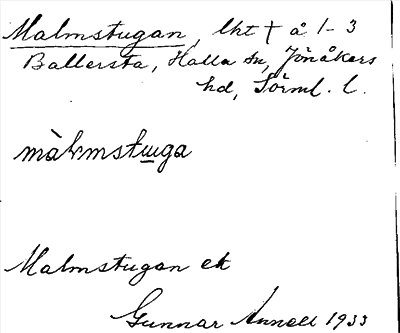 Malmstugan, lht † å 1-3
Ballersta, Halla sn, Jönåkers
hd, Sörml. l.
màlmstɯga
Malmstugan ek
Gunnar Annell 1933